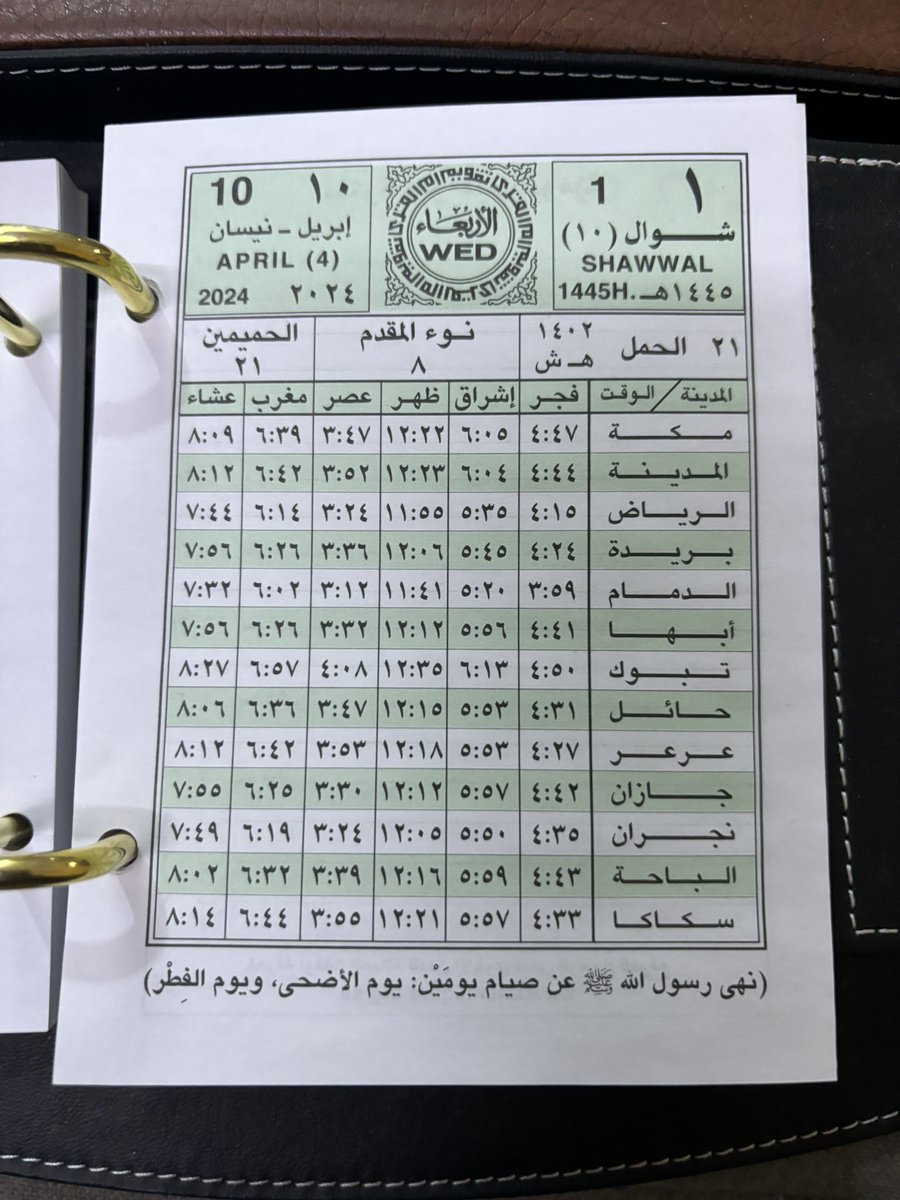 ١ 1
شوال (١٠)
SHAWWAL
1445H. ١٤٤٥هـ
تقويم أم القرى
الأربعاء
WED
10 ١٠
إبريل - نيسان
APRIL (4)
2024 ٢٠٢٤
٢١ الحمل ١٤٠٢ هـ ش
نوء المقدم ٨
الحميمين ٢١
المدينة / الوقت فجر إشراق ظهر عصر مغرب عشاء
مكة ٤:٤٧ ٦:٠٥ ١٢:٢٢ ٣:٤٧ ٦:٣٩ ٨:٠٩
المدينة ٤:٤٤ ٦:٠٤ ١٢:٢٣ ٣:٥٢ ٦:٤٢ ٨:١٢
الرياض ٤:١٥ ٥:٣٥ ١١:٥٥ ٣:٢٤ ٦:١٤ ٧:٤٤
بريدة ٤:٢٤ ٥:٤٥ ١٢:٠٦ ٣:٣٦ ٦:٢٦ ٧:٥٦
الدمام ٣:٥٩ ٥:٢٠ ١١:٤١ ٣:١٢ ٦:٠٢ ٧:٣٢
أبها ٤:٤١ ٥:٥٦ ١٢:١٢ ٣:٣٢ ٦:٢٦ ٧:٥٦
تبوك ٤:٥٠ ٦:١٣ ١٢:٣٥ ٤:٠٨ ٦:٥٧ ٨:٢٧
حائل ٤:٣١ ٥:٥٣ ١٢:١٥ ٣:٤٧ ٦:٣٦ ٨:٠٦
عرعر ٤:٢٧ ٥:٥٣ ١٢:١٨ ٣:٥٣ ٦:٤٢ ٨:١٢
جازان ٤:٤٢ ٥:٥٧ ١٢:١٢ ٣:٣٠ ٦:٢٥ ٧:٥٥
نجران ٤:٣٥ ٥:٥٠ ١٢:٠٥ ٣:٢٤ ٦:١٩ ٧:٤٩
الباحة ٤:٤٣ ٥:٥٩ ١٢:١٦ ٣:٣٩ ٦:٣٢ ٨:٠٢
سكاكا ٤:٣٣ ٥:٥٧ ١٢:٢١ ٣:٥٥ ٦:٤٤ ٨:١٤
(نهى رسول الله ﷺ عن صيام يومَيْن: يوم الأضحى، ويوم الفِطْر)